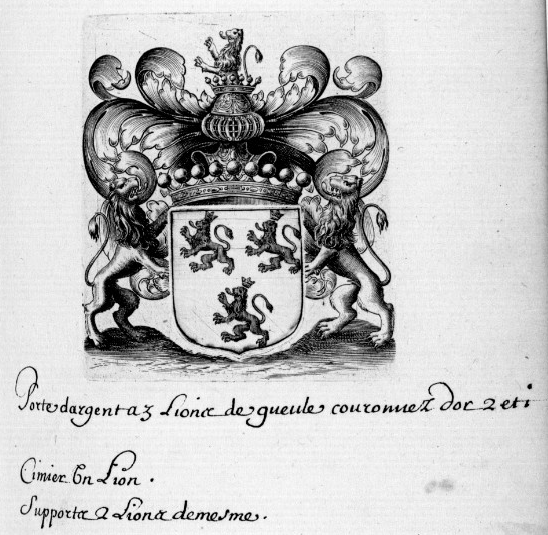 Porte dargent a 3 Lions de gueule couronnez dor 2 et 1
Cimier Un Lion.
Supportz 2 Lions de mesme.